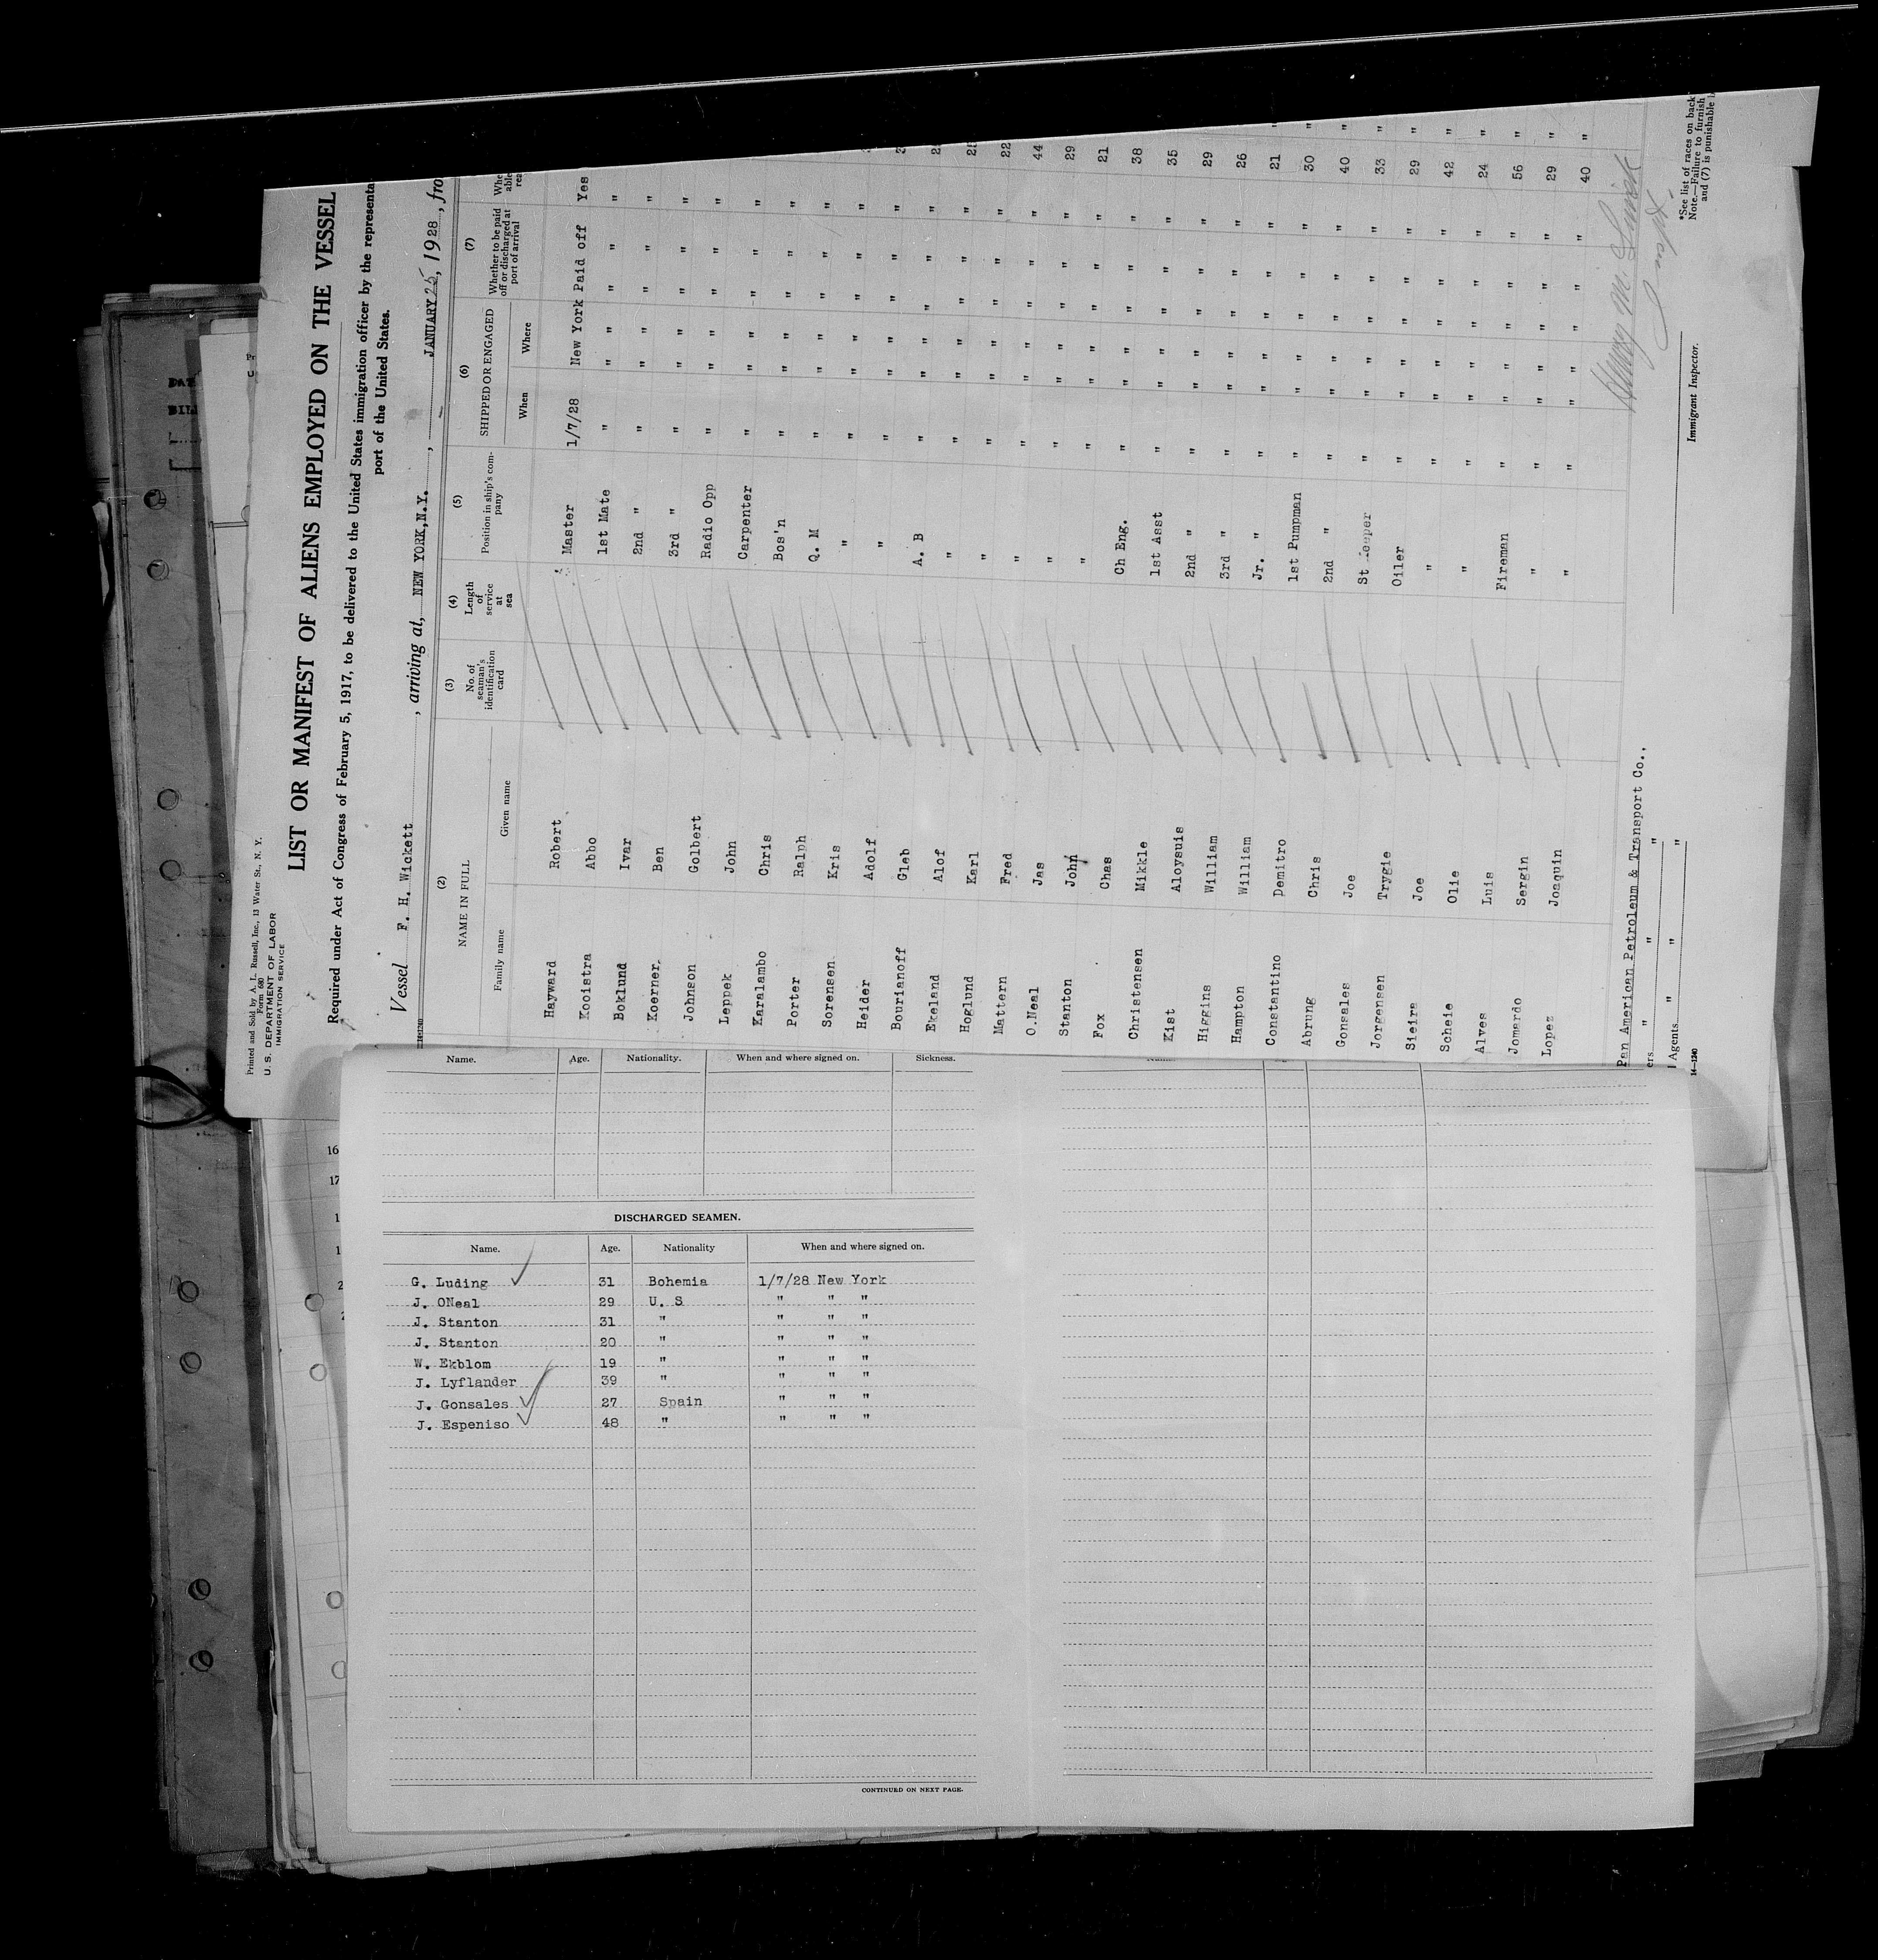 Printed and Sold by A. L. Russell, Inc., 13 Water St., N. Y.
Form 680
U. S. DEPARTMENT OF LABOR
IMMIGRATION SERVICE
LIST OR MANIFEST OF ALIENS EMPLOYED ON THE VESSEL
Required under Act of Congress of February 5, 1917, to be delivered to the United States immigration officer by the representa
port of the United States.
Vessel F. H. Wickett, arriving at, NEW YORK,N.Y., JANUARY 25, 1928, fro
(2) (3) (4) (5) (6) (7)
NAME IN FULL No. of seaman's identification card Length of service at sea Position in ship's company SHIPPED OR ENGAGED Whether to be paid off or discharged at port of arrival
Family name Given name When Where
Hayward Robert Master 1/7/28 New York Paid off Yes
Kooistra Abbo 1st Mate " " " " " "
Boklund Ivar 2nd " " " " " " "
Koerner. Ben 3rd " " " " " " "
Johnson Golbert Radio Opp " " " " " "
Leppek John Carpenter " " " " " "
Karalambo Chris Bos'n " " " " " "
Porter Ralph Q. M " " " " " "
Sorensen Kris " " " " " " "
Heider Adolf " " " " " " "
Bourianoff Gleb A. B " " " " " "
Ekeland Alof " " " " " " "
Hoglund Karl " " " " " " " 22
Mattern Fred " " " " " " " 44
O.Neal Jas " " " " " " " 29
Stanton John " " " " " " " 21
Fox Chas Ch Eng. " " " " " " 38
Christensen Mikkle 1st Asst " " " " " " 35
Kist Aloysuis 2nd " " " " " " " 29
Higgins William 3rd " " " " " " " 26
Hampton William Jr. " " " " " " " 21 "
Constantino Demitro 1st Pumpman " " " " " " 30 "
Abrung Chris 2nd " " " " " " " 40 "
Gonsales Joe St keeper " " " " " " 33 "
Jorgensen Trygie Oiler " " " " " " 29 "
Sieira Joe " " " " " " " 42 "
Scheie Olie " " " " " " " 24 "
Alves Luis Fireman " " " " " " 56 "
Jomardo Sergin " " " " " " " 29 "
Lopez Joaquin " " " " " " " 40 "
Pan American Petroleum & Transport Co.,
ers " " "
Agents " " "
14—1240
Immigrant Inspector.
*See list of races on back
Note.—Failure to furnish
and (7) is punishable
Name. Age. Nationality. When and where signed on. Sickness.
DISCHARGED SEAMEN.
Name. Age. Nationality When and where signed on.
G. Luding 31 Bohemia 1/7/28 New York
J. ONeal 29 U. S " " "
J. Stanton 31 " " " "
J. Stanton 20 " " " "
W. Ekblom 19 " " " "
J. Lyflander 39 " " " "
J. Gonsales 27 Spain " " "
J. Espeniso 48 " " " "
CONTINUED ON NEXT PAGE.
16
17